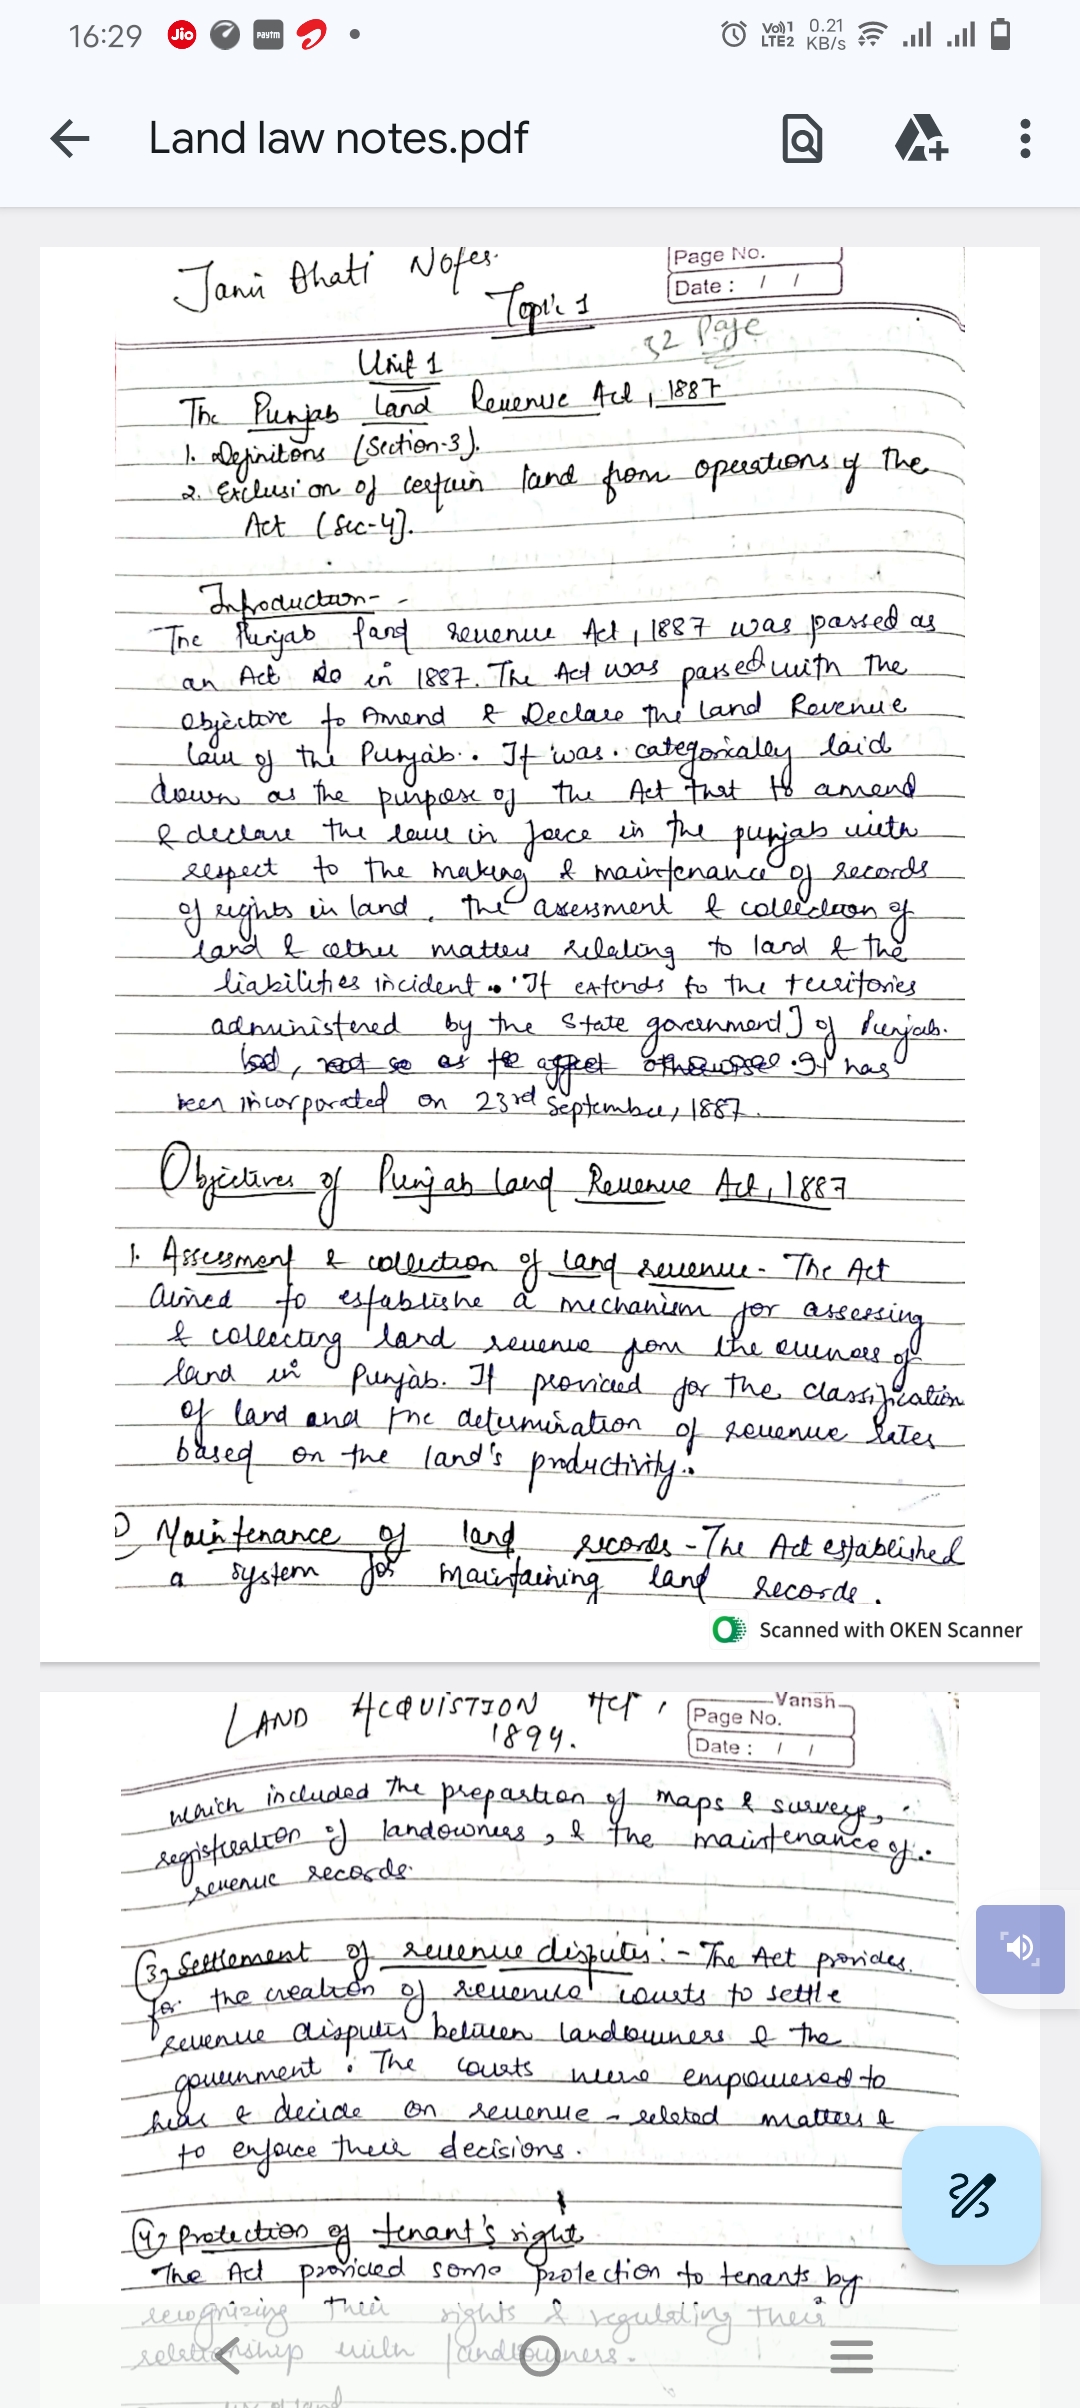 16:29 Jio Paytm Vo)) 1 LTE2 0.21 KB/s
Land law notes.pdf
Notes.
Page No.
Date : / /
Topic 1
32 Page
Unit 1
The Punjab Land Revenue Act, 1887
1. Definitons (Section-3).
2. Exclusion of certain land from operations of the
Act (Sec-4).
Introduction-
The Punjab land revenue Act, 1887 was passed as
an Act in 1887. The Act was passed with the
objective to Amend & Declare the land Revenue
law of the Punjab. It was categorically laid
down as the purpose of the Act that to amend
& declare the law in force in the punjab with
respect to the making & maintenance of records
of rights in land, the assessment & collection of
land & other matters relating to land & the
liabilities incident. It extends to the territories
administered by the State government] of Punjab.
It has
been incorporated on 23rd September, 1887.
Objectives of Punjab Land Revenue Act, 1887
1. Assessment & collection of land revenue - The Act
aimed to establishe a mechanism for assessing
& collecting land revenue from the owners of
land in Punjab. It provided for the classification
of land and the determination of revenue rates
based on the land's productivity.
Maintenance of land records - The Act established
a system for maintaining land records.
Scanned with OKEN Scanner
LAND ACQUISTION ACT,
1894.
Vansh
Page No.
Date : / /
which included the prepartion of maps & surveys,
registration of landowners, & the maintenance of
revenue records.
(3) Settlement of revenue disputes :- The Act provides
for the creation of revenue courts to settle
revenue disputes between landowners & the
government. The courts were empowered to
hear & decide on revenue - related matters &
to enforce their decisions.
(4) Protection of tenant's right
The Act provided some protection to tenants by
recognizing their rights & regulating their
relationship with landowners.